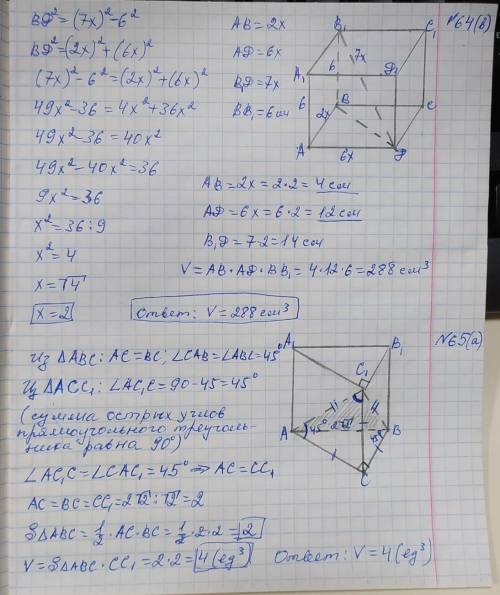 №64(в)
BD²=(7x)²-6²
BD²=(2x)²+(6x)²
(7x)²-6²=(2x)²+(6x)²
49x²-36=4x²+36x²
49x²-36=40x²
49x²-40x²=36
9x²=36
x²=36:9
x²=4
x=√4
x=2
AB=2x
AD=6x
B₁D=7x
BB₁=6см
B₁
C₁
7x
A₁
6
D₁
6
B
C
2x
A
6x
D
AB=2x=2·2=4см
AD=6x=6·2=12см
B₁D=7·2=14см
V=AB·AD·BB₁=4·12·6=288см³
Ответ: V=288см³
№65(а)
Из ΔABC: AC=BC; ∠CAB=∠ABC=45°
Из ΔACC₁: ∠AC₁C=90-45=45°
(сумма острых углов
прямоугольного треуголь-
ника равна 90°)
∠AC₁C=∠CAC₁=45°⇒AC=CC₁
AC=BC=CC₁=2√2:√2=2
SΔABC=1/2·AC·BC=1/2·2·2=2
V=SΔABC·CC₁=2·2=4(ед³)
Ответ: V=4(ед³)
A₁
B₁
C₁
A
45°
2√2
45°
B
C